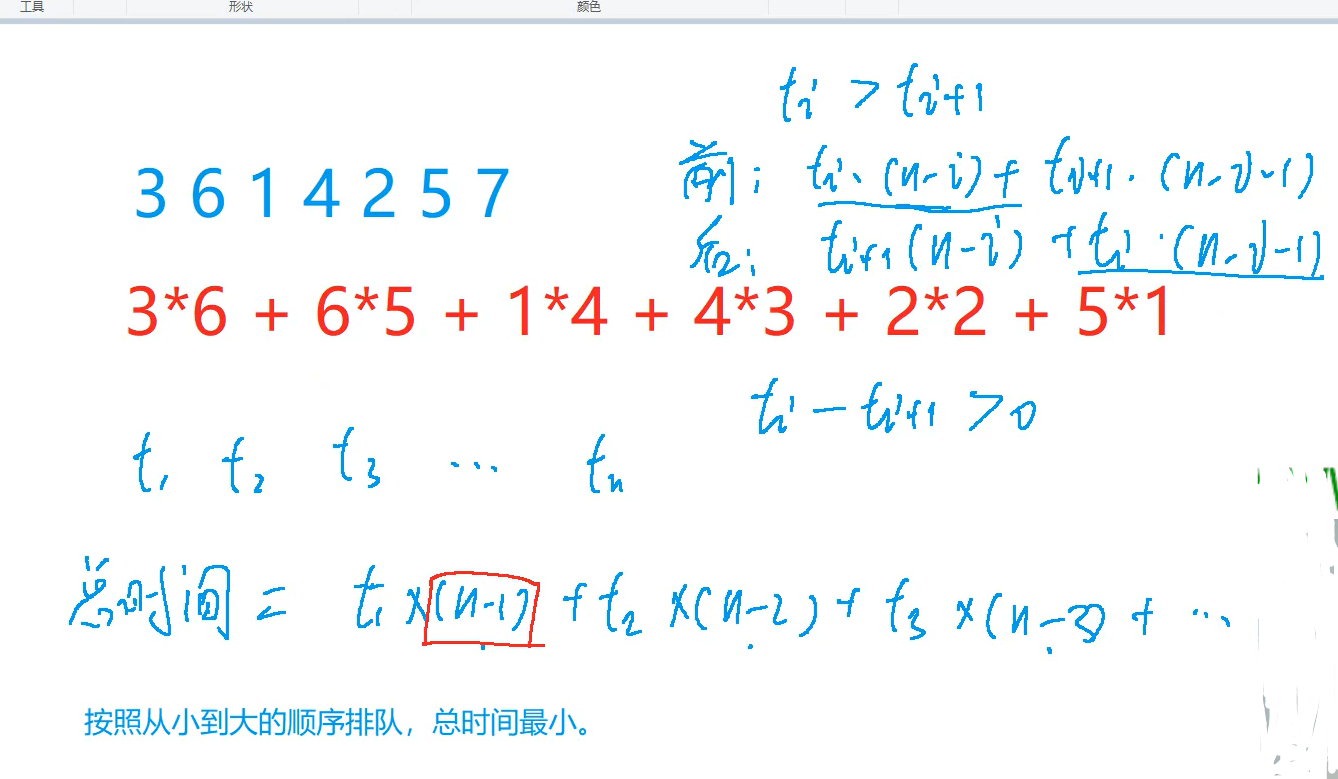 工具 形状 颜色
tᵢ > tᵢ₊₁
3 6 1 4 2 5 7
前: tᵢ·(n-i)+ tᵢ₊₁·(n-i-1)
后: tᵢ₊₁(n-i) + tᵢ·(n-i-1)
3*6 + 6*5 + 1*4 + 4*3 + 2*2 + 5*1
tᵢ - tᵢ₊₁ > 0
t₁ t₂ t₃ ... tₙ
总时间 = t₁×(n-1)+t₂×(n-2)+t₃×(n-3)+ ...
按照从小到大的顺序排队，总时间最小。